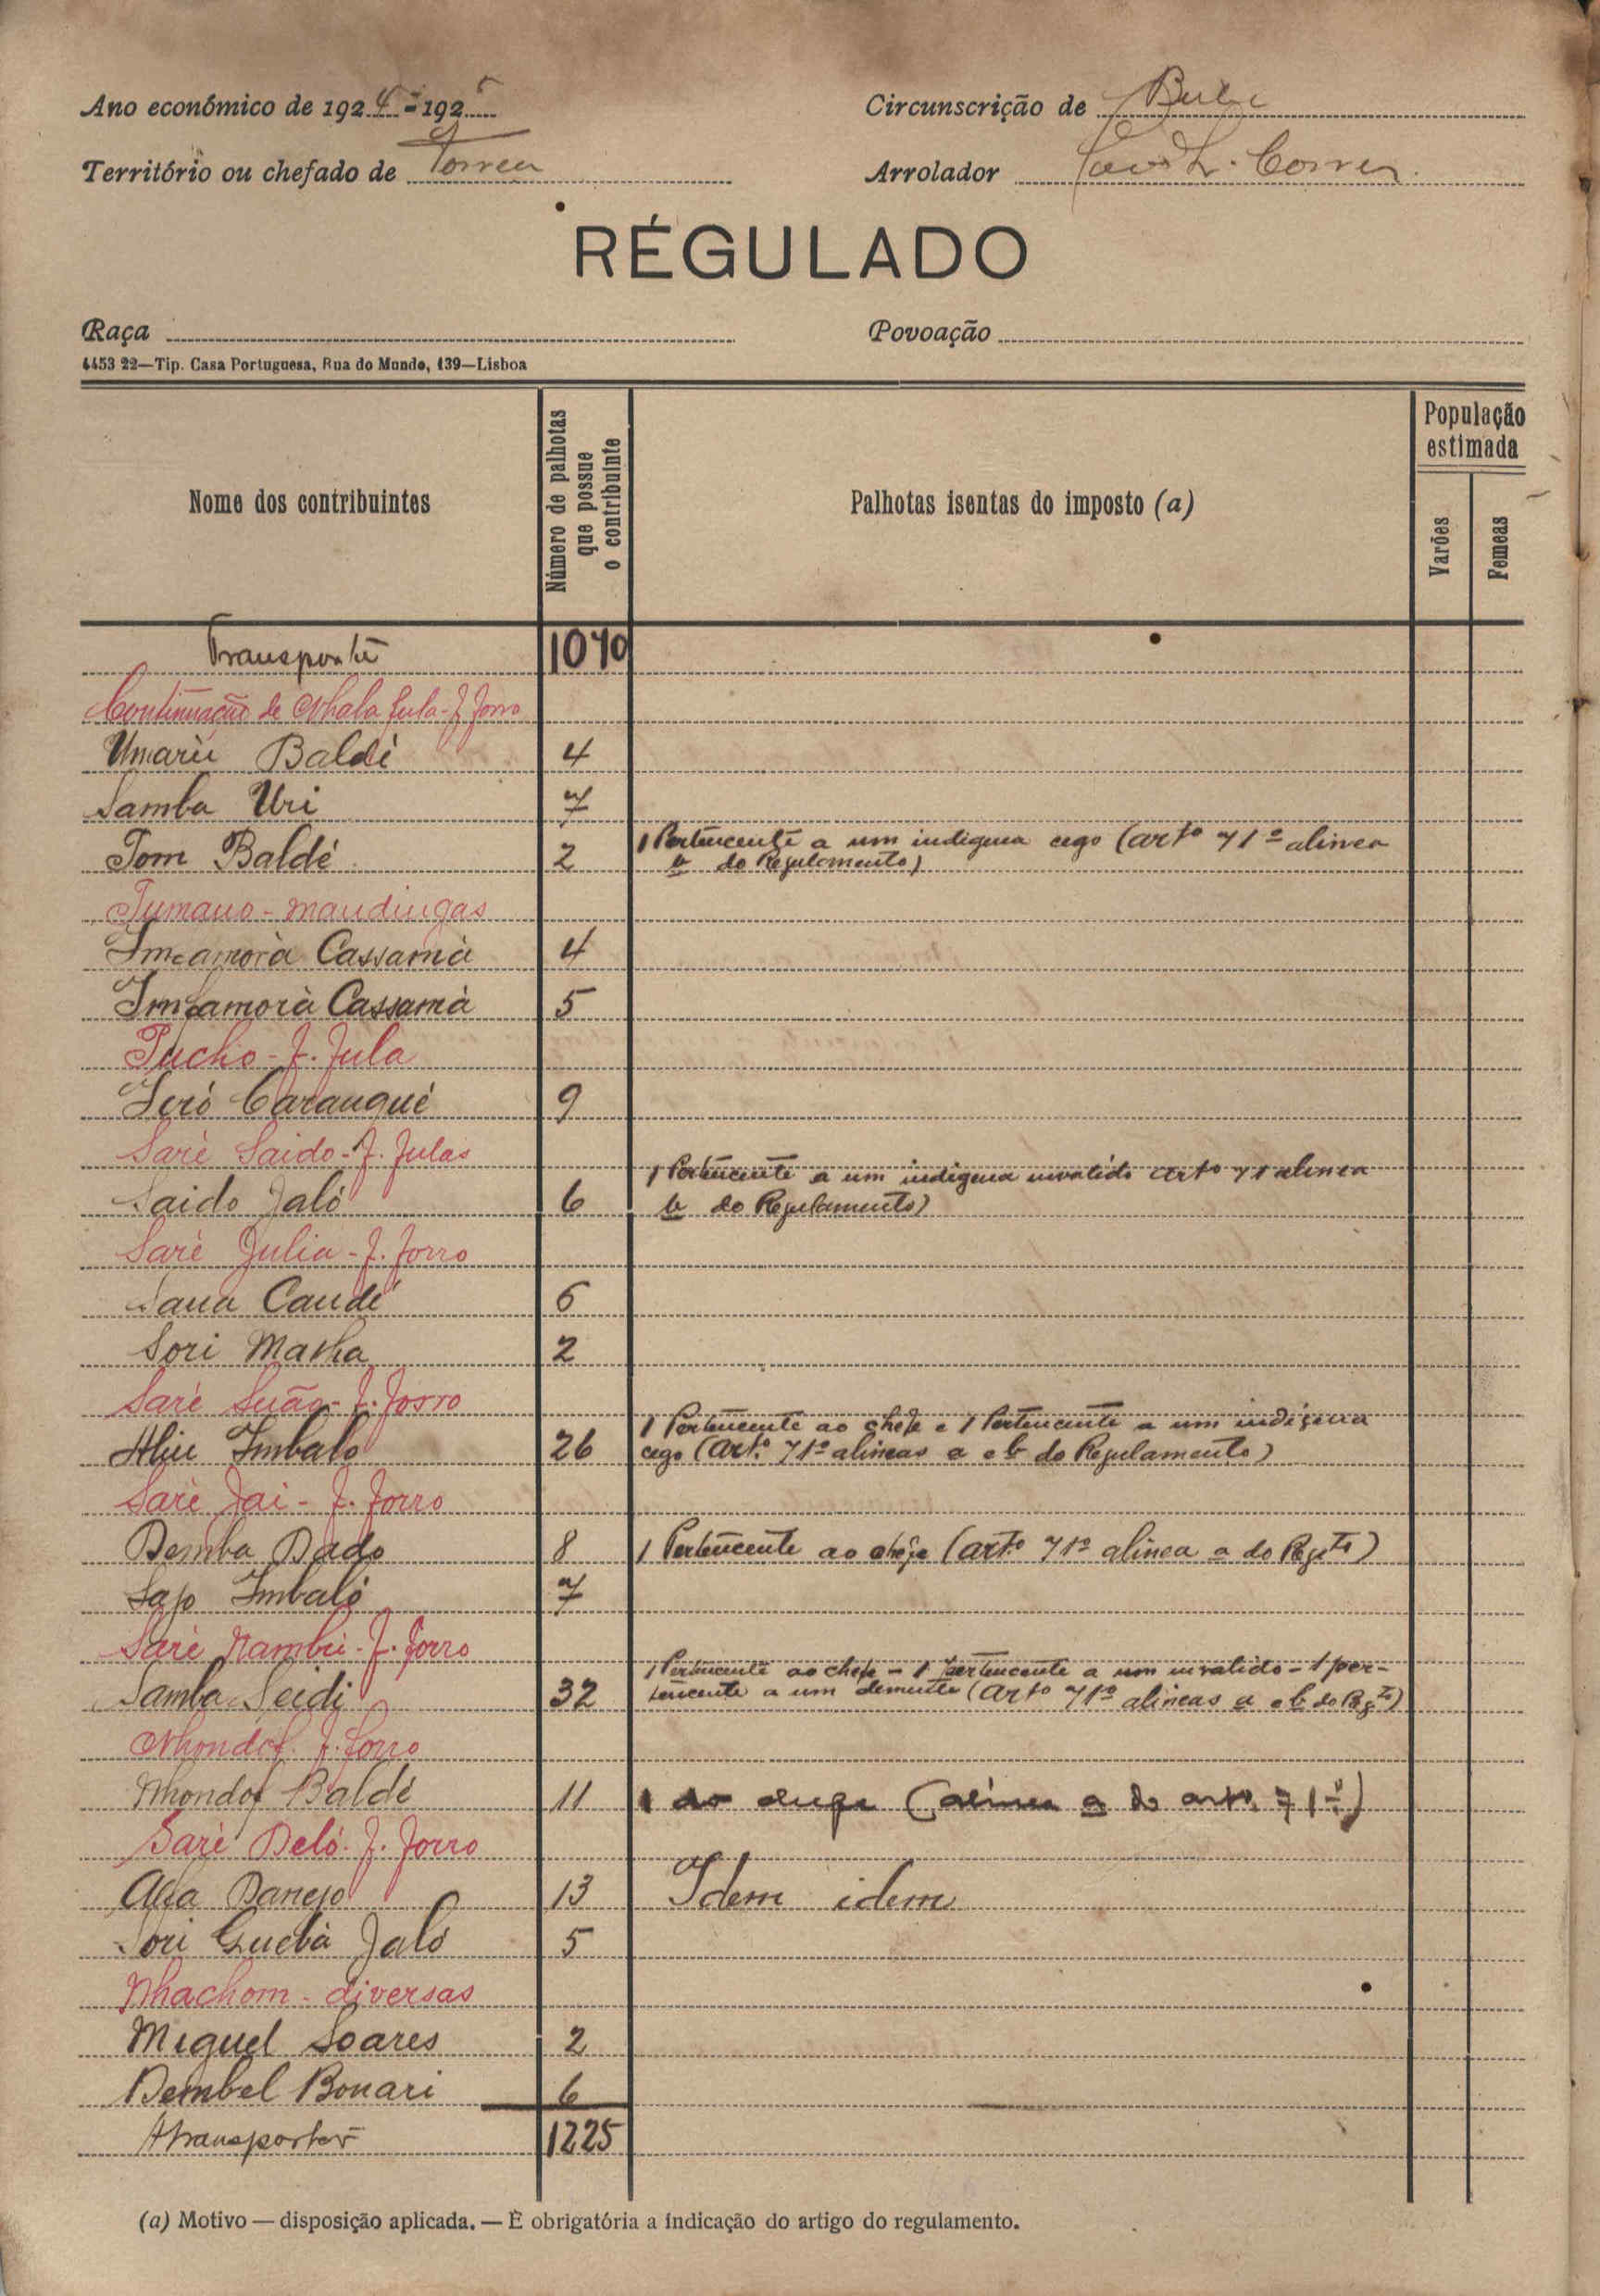 Ano económico de 1924-1925
Circunscrição de
Território ou chefado de Torrea
Arrolador Correa
RÉGULADO
Raça
Povoação
4453 22—Tip. Casa Portuguesa, Rua do Mundo, 139—Lisboa
Nome dos contribuintes
Número de palhotas que possue o contribuinte
Palhotas isentas do imposto (a)
População estimada
Varões
Femeas
Transporte 1070
Continuação de Nhala fula - f. forro
Umarù Baldé 4
Samba Uri 7
Tom Baldé 2 1 Pertencente a um indigena cego (artº 71º alinea
b do Regulamento)
Tumano - mandingas
Imcamorà Cassamà 4
Imfamorà Cassamà 5
Tucho - f. fula
Seró Carangué 9
Saré Saido - f. fulas
Saido Jaló 6 1 Pertencente a um indigena invalido artº 71 alinea
b do Regulamento)
Saré Julia - f. forro
Sana Candé 6
Sori 2
Saré Suão - f. forro
Aliu Imbaló 26 1 Pertencente ao chefe e 1 Pertencente a um indigena
cego (Artº 71º alineas a e b do Regulamento)
Saré Jai - f. forro
Demba Dado 8 1 Pertencente ao chefe (artº 71º alinea a do Regtº)
Sajo Imbaló 7
Saré Nambú - f. forro
Samba Seidi 32 1 Pertencente ao chefe - 1 pertencente a um invalido - 1 per-
tencente a um demente (artº 71º alineas a e b do Regtº)
Nhondof. f. forro
Nhondof Baldé 11 1 do chefe (alinea a do artº 71º)
Saré Deló. f. forro
Alfa Danejo 13 Idem idem
Sori Guebà Jaló 5
Nhachom - diversas
Miguel Soares 2
Dembel Bonari 6
A transportar 1225
(a) Motivo — disposição aplicada. — È obrigatória a indicação do artigo do regulamento.